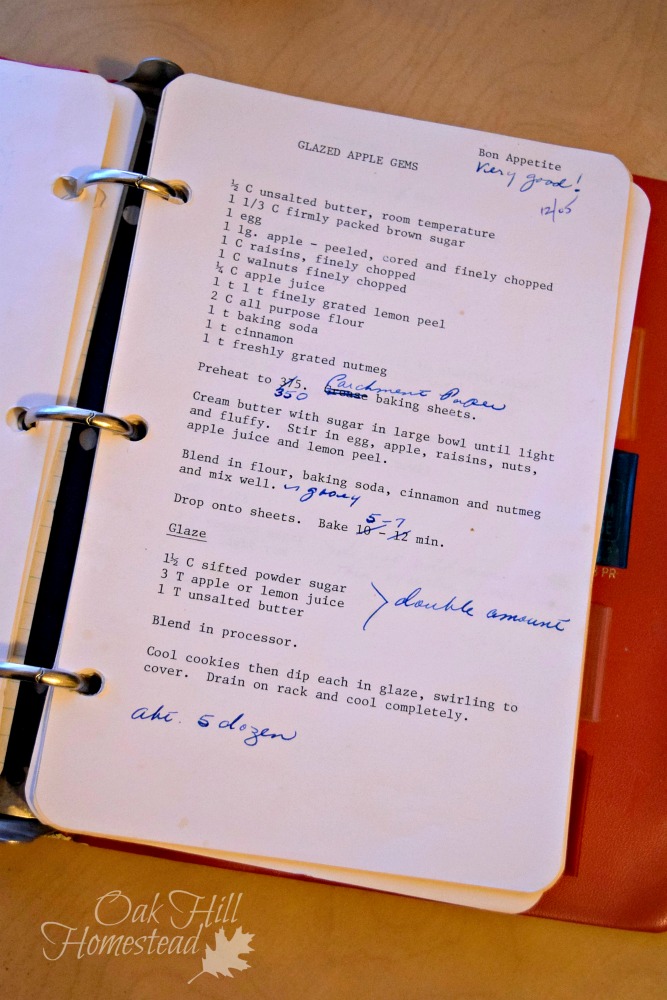 GLAZED APPLE GEMS
Bon Appetite
Very good!
12/05
½ C unsalted butter, room temperature
1 1/3 C firmly packed brown sugar
1 egg
1 lg. apple - peeled, cored and finely chopped
1 C raisins, finely chopped
1 C walnuts finely chopped
¼ C apple juice
1 t 1 t finely grated lemon peel
2 C all purpose flour
1 t baking soda
1 t cinnamon
1 t freshly grated nutmeg
Parchment Paper
Preheat to 375. Grease baking sheets.
350
Cream butter with sugar in large bowl until light
and fluffy. Stir in egg, apple, raisins, nuts,
apple juice and lemon peel.
Blend in flour, baking soda, cinnamon and nutmeg
and mix well. gooey
5-7
Drop onto sheets. Bake 10 - 12 min.
Glaze
1½ C sifted powder sugar
3 T apple or lemon juice
1 T unsalted butter
double amount
Blend in processor.
Cool cookies then dip each in glaze, swirling to
cover. Drain on rack and cool completely.
abt. 5 dozen
PR
Oak Hill
Homestead